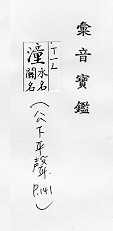 彙音寶鑑
潼 水名 關名
(公下平聲
P.141)